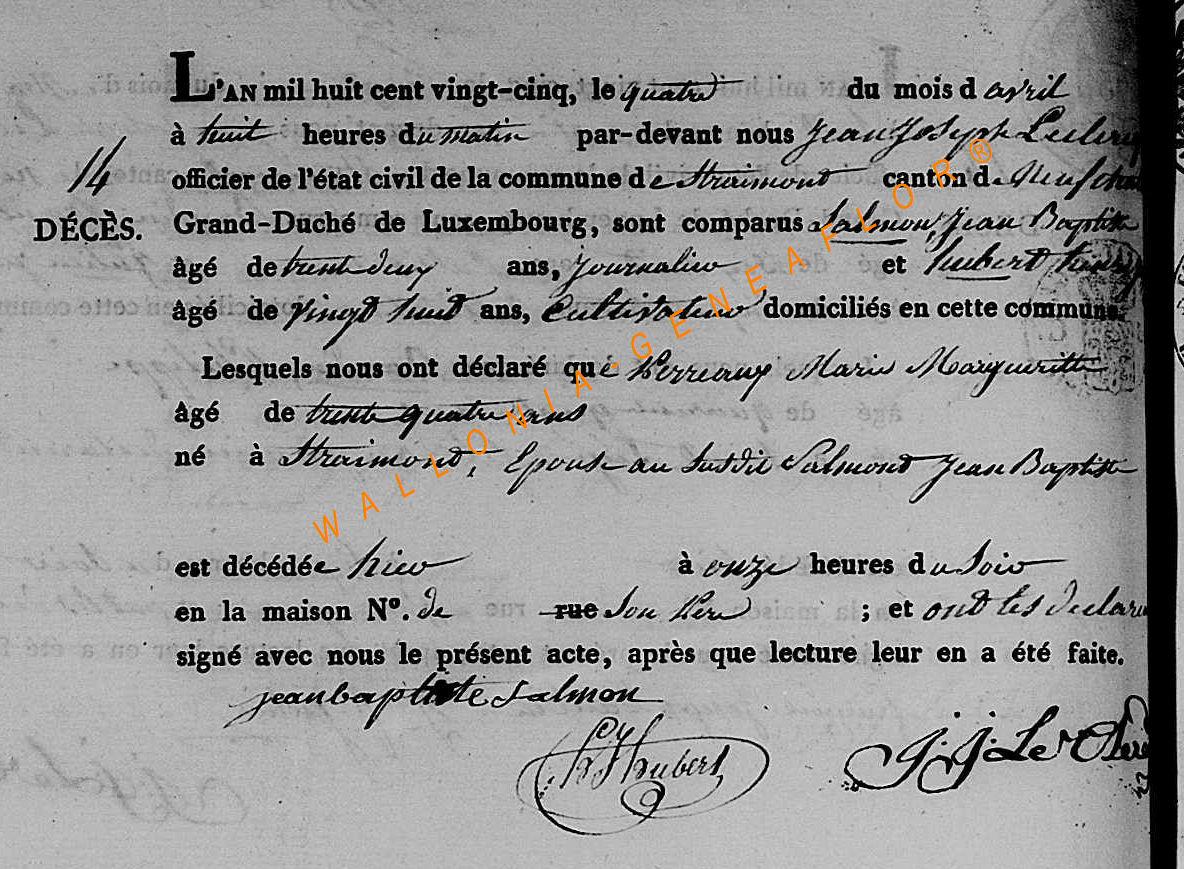 L'AN mil huit cent vingt-cinq, le quatre du mois d avril
à huit heures du matin par-devant nous Jean Joseph
14 officier de l'état civil de la commune de Straimont canton de
DÉCÈS. Grand-Duché de Luxembourg, sont comparus Salmon, Jean Baptiste
âgé de trente deux ans, Journalier et hubert
âgé de vingt huit ans, Cultivateur domiciliés en cette commune.
Lesquels nous ont déclaré que Marie Margueritte
âgé de trente quatre ans
né à Straimont, Epouse au susdit Salmont Jean Baptiste
est décédée hier à onze heures du Soir
en la maison N°. de rue Son ; et ont les
signé avec nous le présent acte, après que lecture leur en a été faite.
jean baptiste salmon
hubert J. J. Le
WALLONIA-GENEAFLOR®